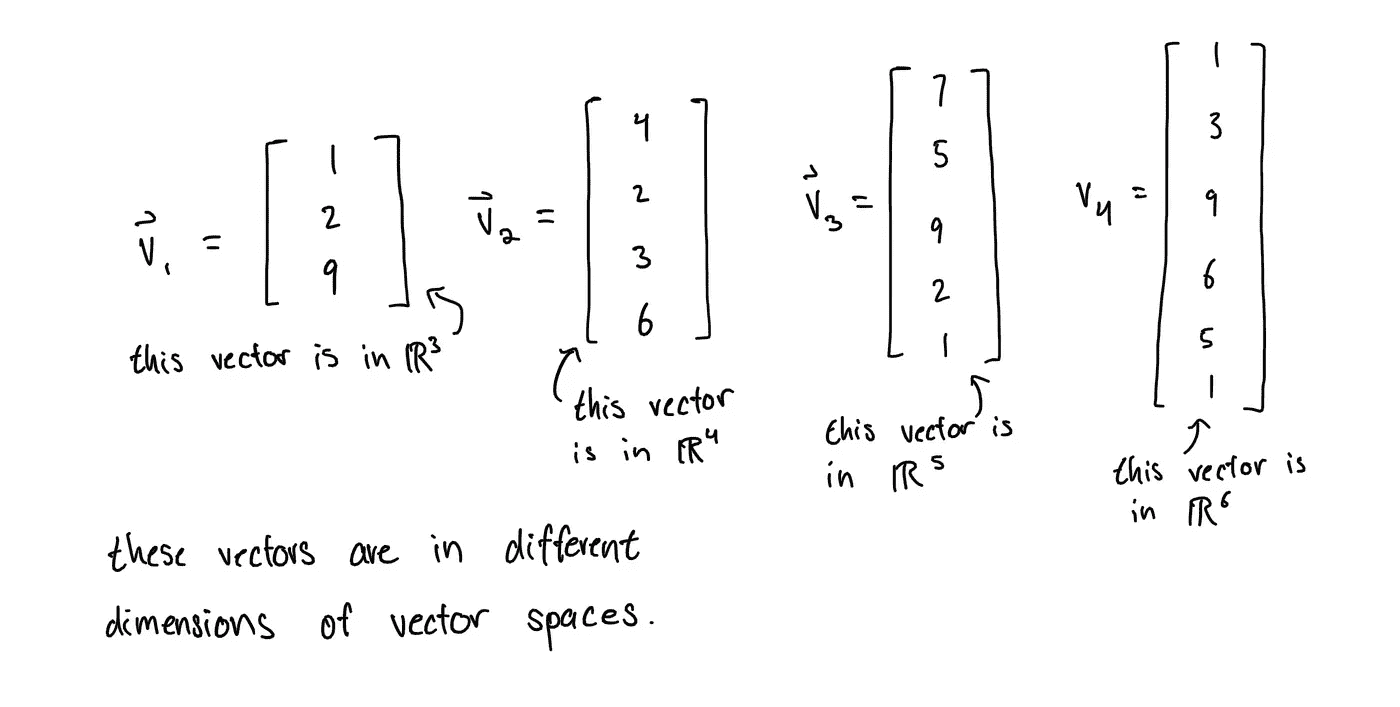 v⃗₁ = [ 1 2 9 ]
this vector is in ℝ³
v⃗₂ = [ 4 2 3 6 ]
this vector
is in ℝ⁴
v⃗₃ = [ 7 5 9 2 1 ]
this vector is
in ℝ⁵
v₄ = [ 1 3 9 6 5 1 ]
this vector is
in ℝ⁶
these vectors are in different
dimensions of vector spaces.